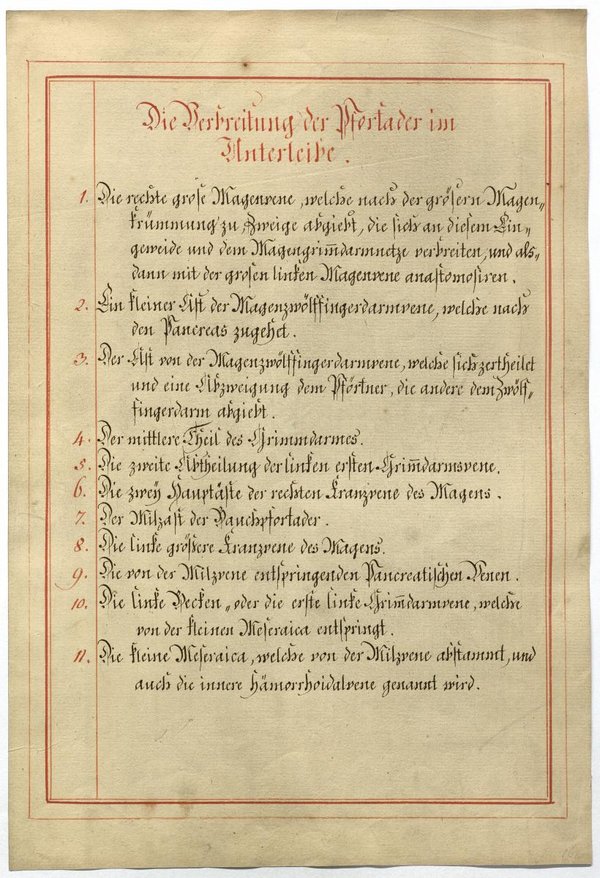 Die Verbreitung der Pfortader im
Unterleibe.
1. Die rechte große Magenvene, welche nach der größern Magen„
krümmung zu Zweige abgiebt, die sich an diesem Ein„
geweide und dem Magengrim̄darmnetze verbreiten, und als„
dann mit der großen linken Magenvene anastomosiren.
2. Ein kleiner Ast der Magenzwölffingerdarmvene, welche nach
den Pancreas zugehet.
3. Der Ast von der Magenzwölffingerdarmvene, welche sich zertheilet
und eine Abzweigung dem Pförtner, die andere dem Zwölf„
fingerdarm abgiebt.
4. Der mittlere Theil des Grimmdarmes.
5. Die zweite Abtheilung der linken ersten Grim̄darmsvene.
6. Die zwey Hauptäste der rechten Kranzvene des Magens.
7. Der Milzast der Bauchpfortader.
8. Die linke größere Kranzvene des Magens.
9. Die von der Milzvene entspringenden Pancreatischen Venen.
10. Die linke Becken„ oder die erste linke Grim̄darmvene, welche
von der kleinen Meseraica entspringt.
11. Die kleine Meseraica, welche von der Milzvene abstammt, und
auch die innere Hämorrhoidalvene genannt wird.